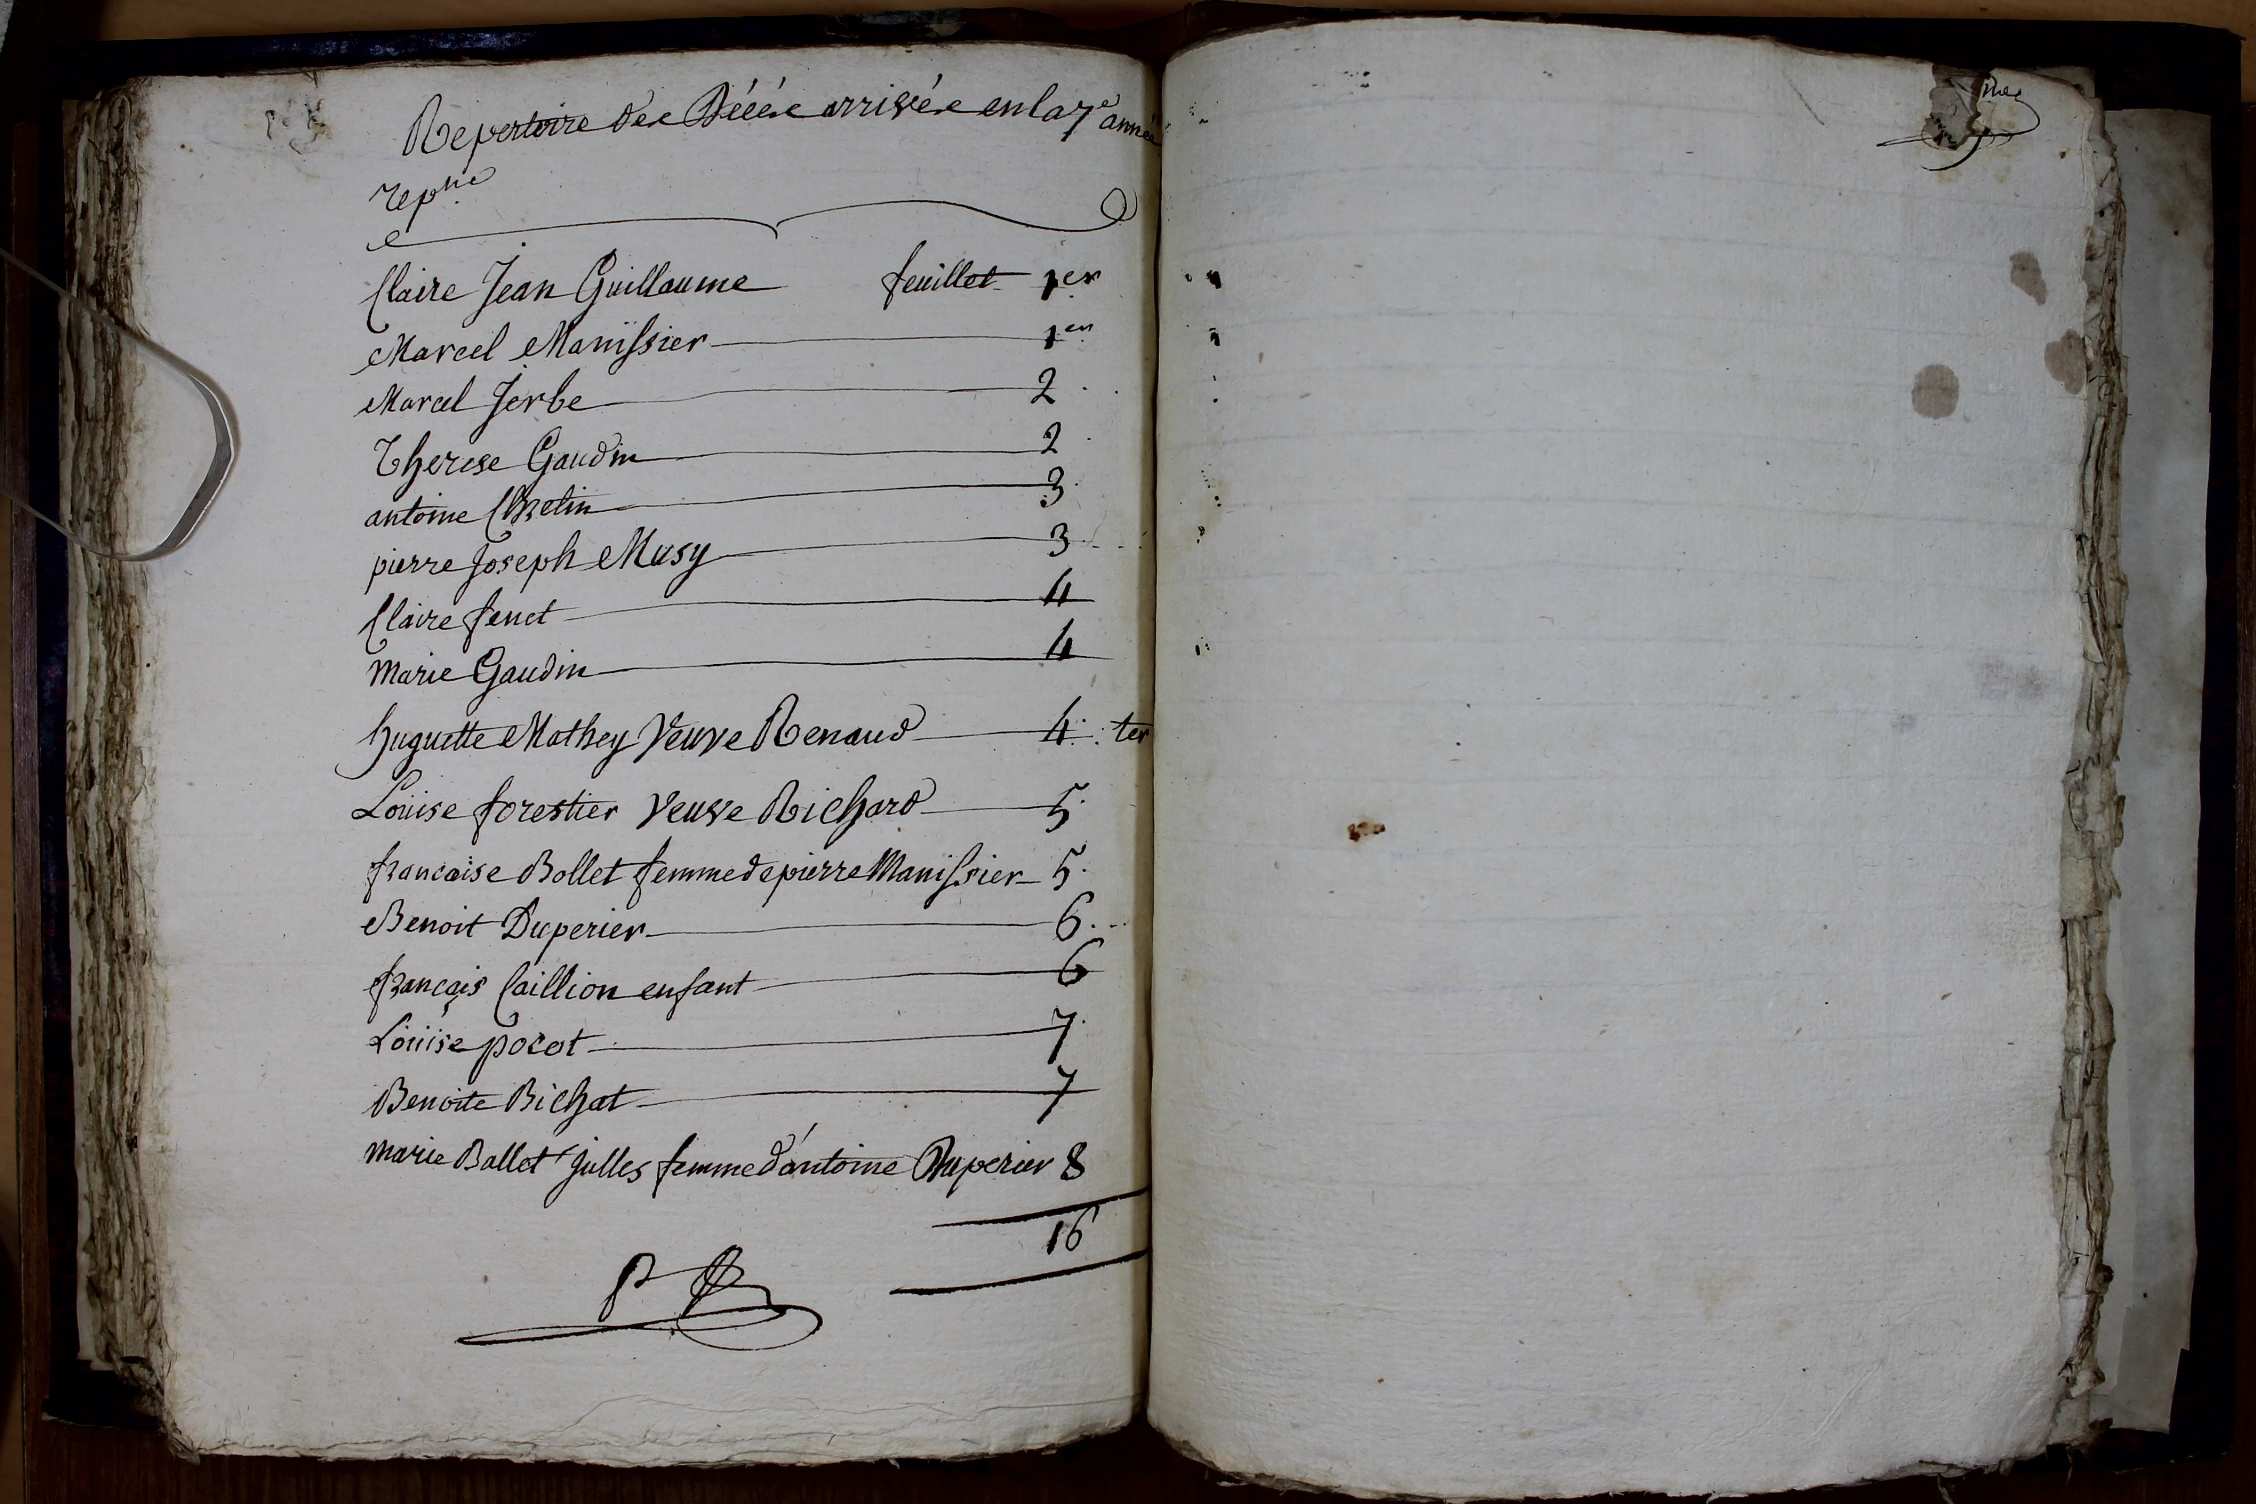 Repertoire des Décés arrivés en la 7e année
repne
Claire Jean Guillaume feuillet 1er
Marcel Manissier 1er
Marcel Jerbe 2
Therese Gaudin 2
antoine Chretin 3
pierre Joseph Musy 3
Claire fenet 4
marie Gaudin 4
huguette Mathey Veuve Renaud 4. ter
Louise forestier Veuve Richard 5.
francoise Bollet femme de pierre Manissier 5.
Benoit Duperier 6.
françois Caillion enfant 6
Louise pocot 7.
Benoite Bichat 7
marie Ballet Julles femme d'antoine Duperier 8
16